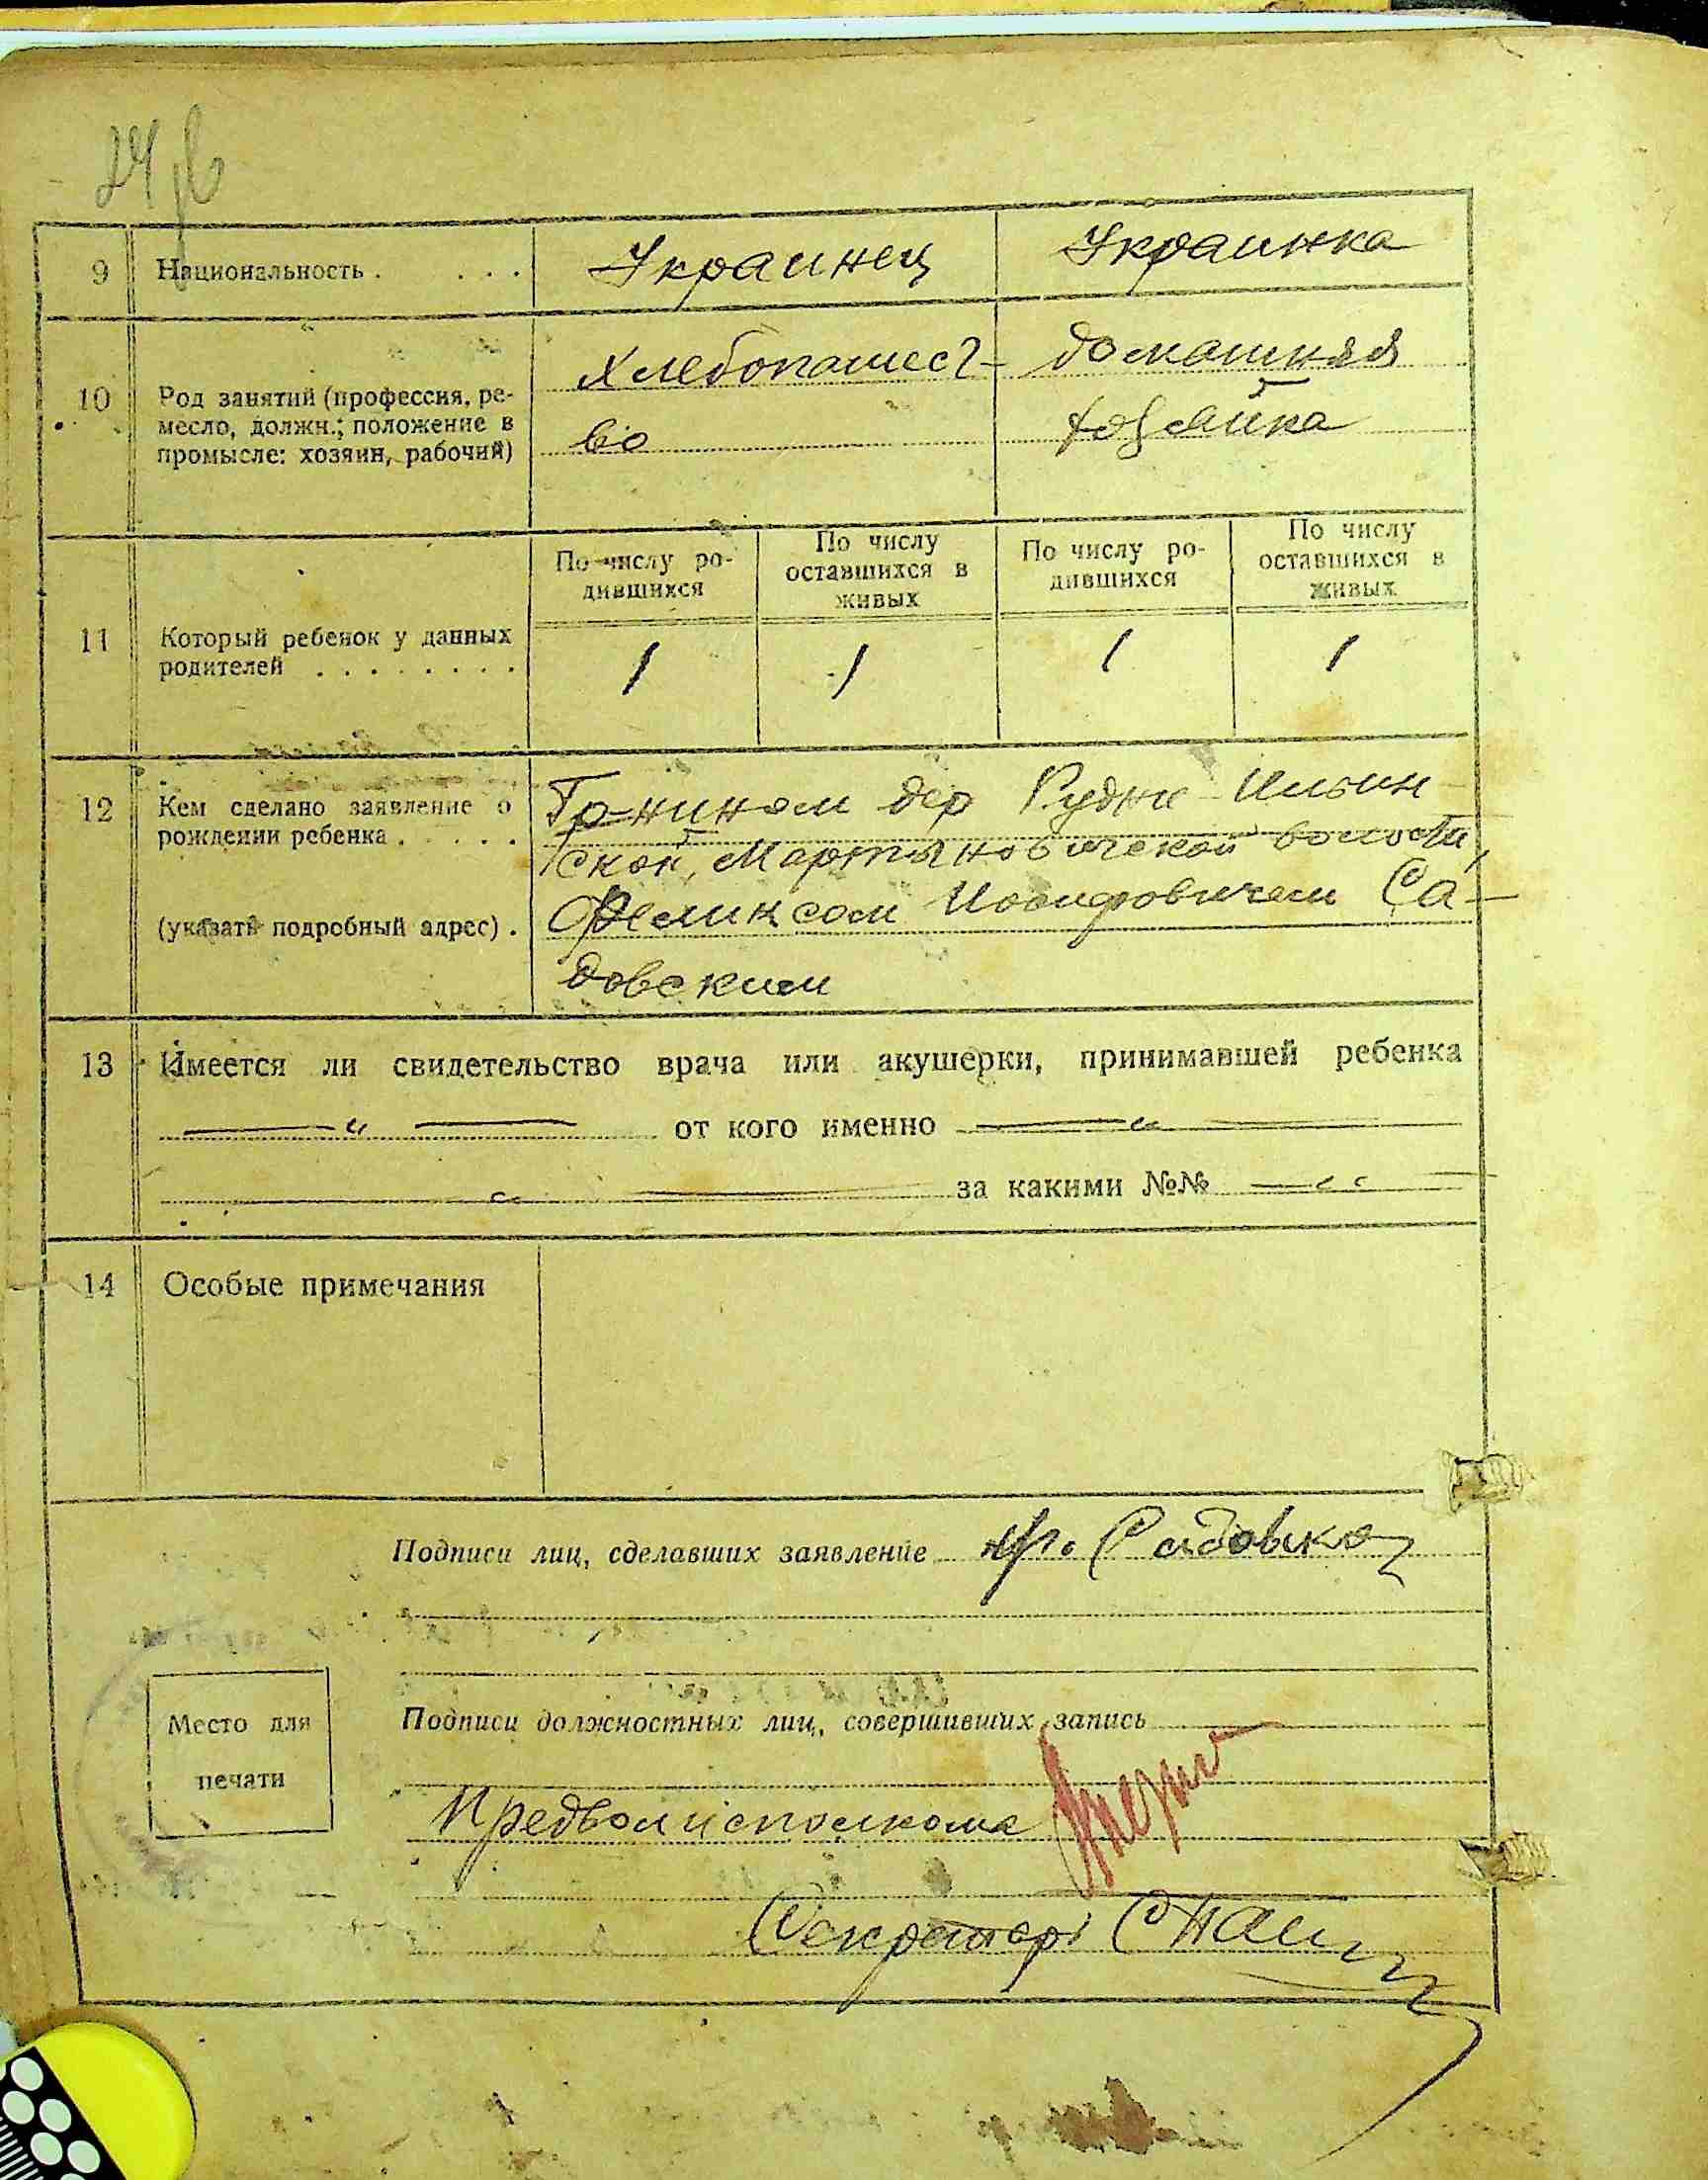 24
9 Национальность . . . . Украинец Украинка
10 Род занятий (профессия, ре-
месло, должн.; положение в
промысле: хозяин, рабочий)
Хлебопашест-
во
домашняя
хозяйка
11 Который ребенок у данных
родителей . . . . . . . .
По числу ро-
дившихся
По числу
оставшихся в
живых
По числу ро-
дившихся
По числу
оставшихся в
живых
1 1 1 1
12 Кем сделано заявление о
рождении ребенка . . . . .
(указать подробный адрес) .
Гр-нином дер Рудни Ильин-
ской, Мартыновической волости,
Феликсом Иосифовичем Са-
довским
13 Имеется ли свидетельство врача или акушерки, принимавшей ребенка
— „ — от кого именно — „ —
„ — за какими №№ — „ —
14 Особые примечания
Подписи лиц, сделавших заявление
Место для
печати
Подписи должностных лиц, совершивших запись
Предволисполкома
Секретарь